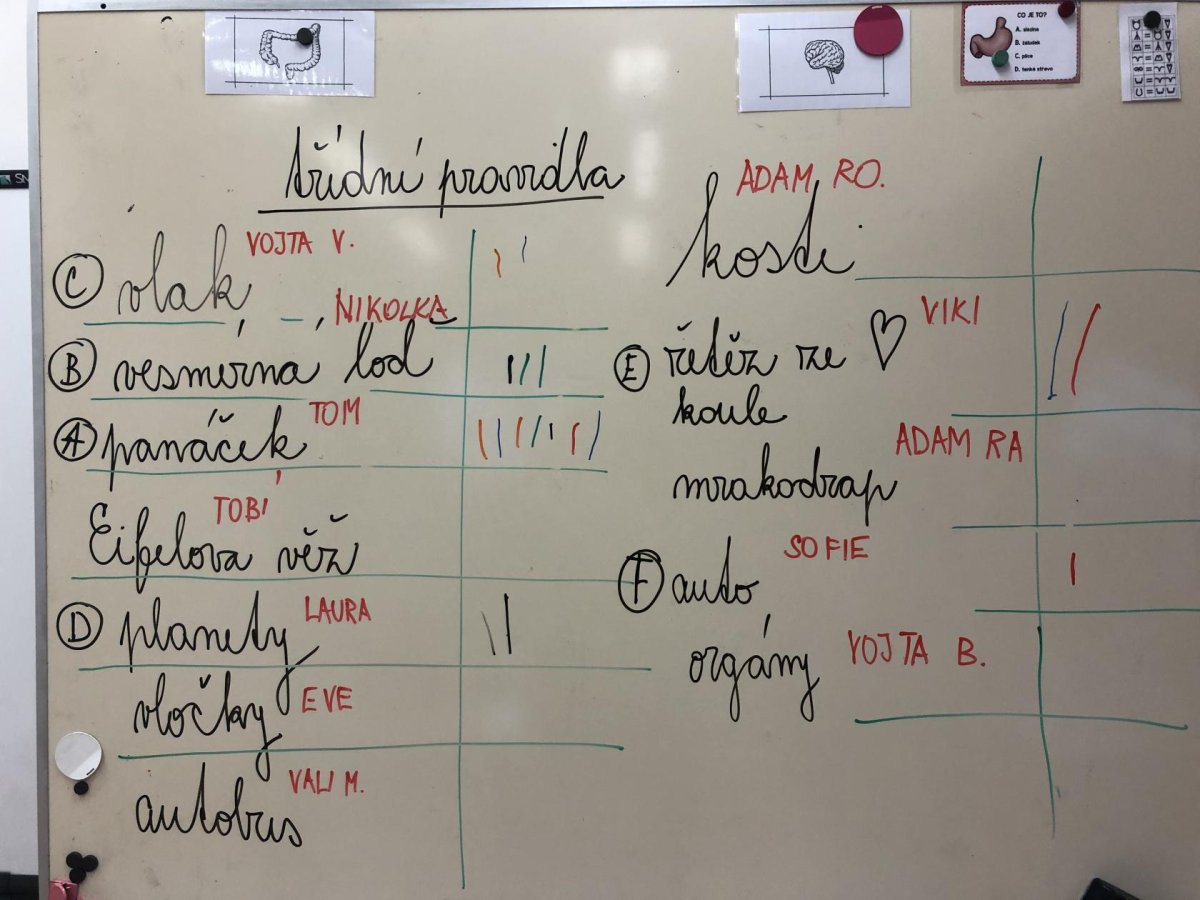 CO JE TO?
A. slezina
B. žaludek
C. plíce
D. tenké střevo
třídní pravidla
C vlak VOJTA V.
B vesmírná loď NIKOLKA
A panáček TOM
Eifelova věž TOBÍ
D planety LAURA
vločky EVE
autobus VALI M.
kosti ADAM RO.
E řetěz ze ♡ VIKI
koule
mrakodrap ADAM RA
F auto SOFIE
orgány VOJTA B.